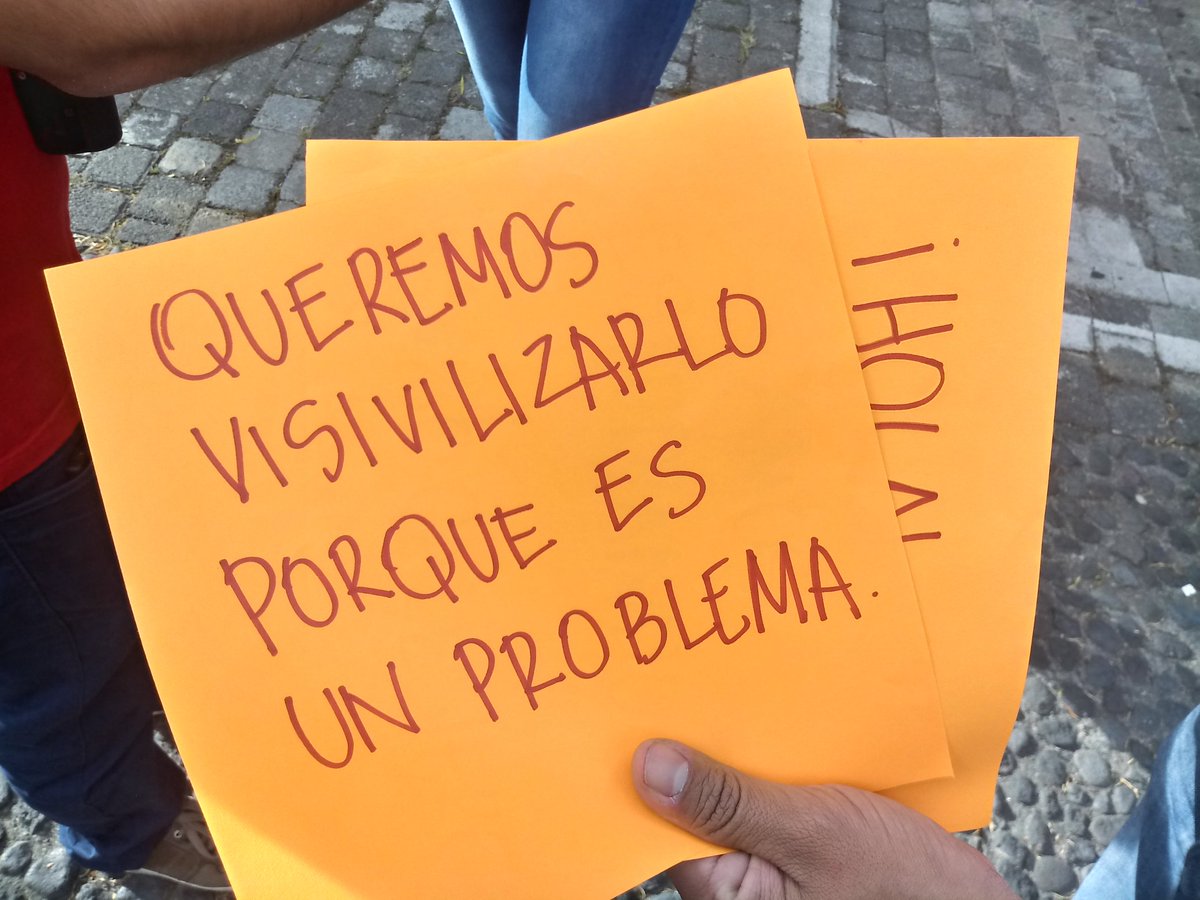 QUEREMOS
VISIVILIZARLO
PORQUE ES
UN PROBLEMA.